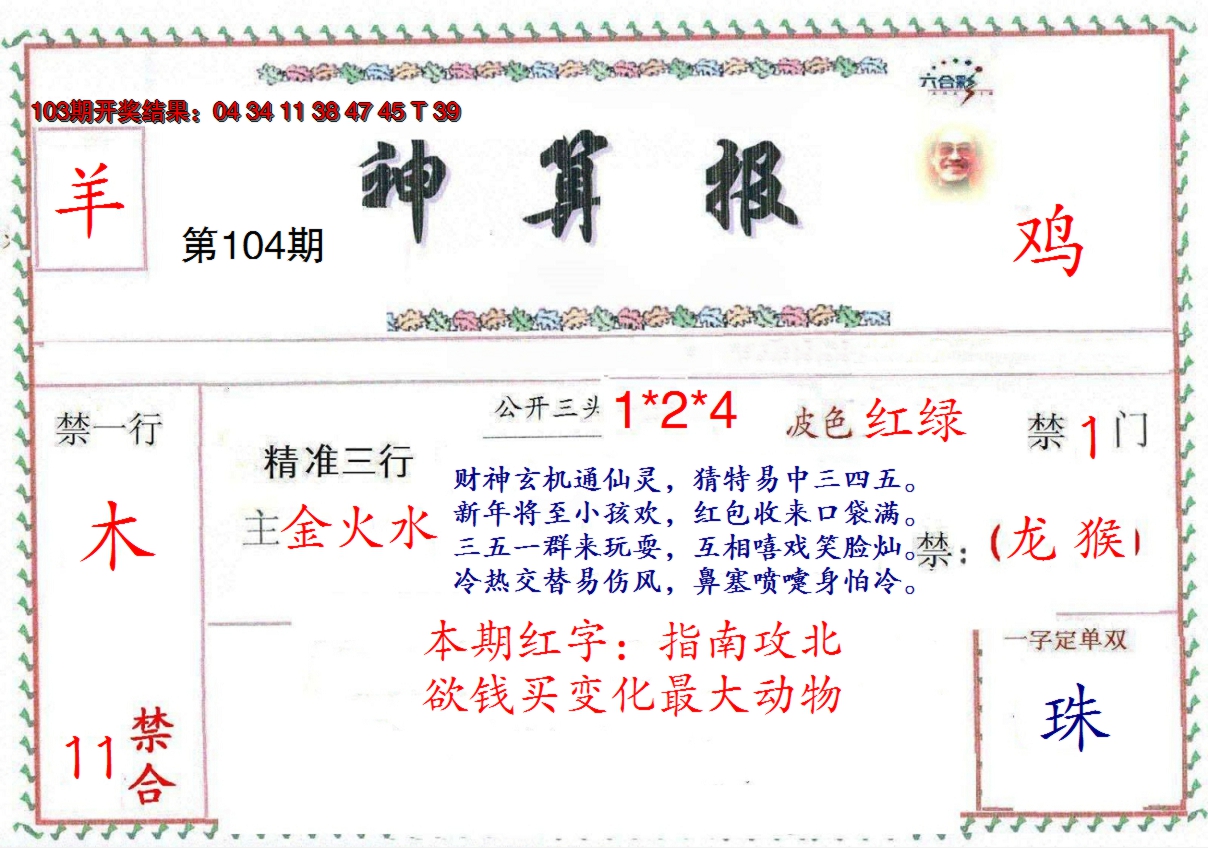 六合彩
103期开奖结果：04 34 11 38 47 45 T 39
羊
神算报
第104期
鸡
公开三头 1*2*4
波色 红绿
禁一行
木
11 禁合
精准三行
主金火水
财神玄机通仙灵，猜特易中三四五。
新年将至小孩欢，红包收来口袋满。
三五一群来玩耍，互相嘻戏笑脸灿。
冷热交替易伤风，鼻塞喷嚏身怕冷。
禁1门
禁：（龙 猴）
本期红字：指南攻北
欲钱买变化最大动物
一字定单双
珠